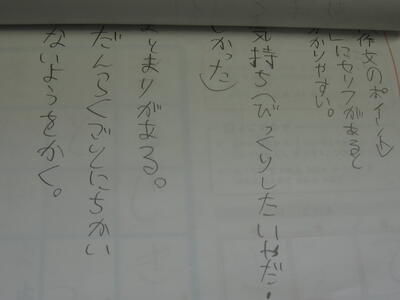 作文のポイント
「 」にセリフがあると
わかりやすい。
気持ち(びっくりした いやだ!
しかった)
まとまりがある。
だんらくごとにちがい
ないようをかく。